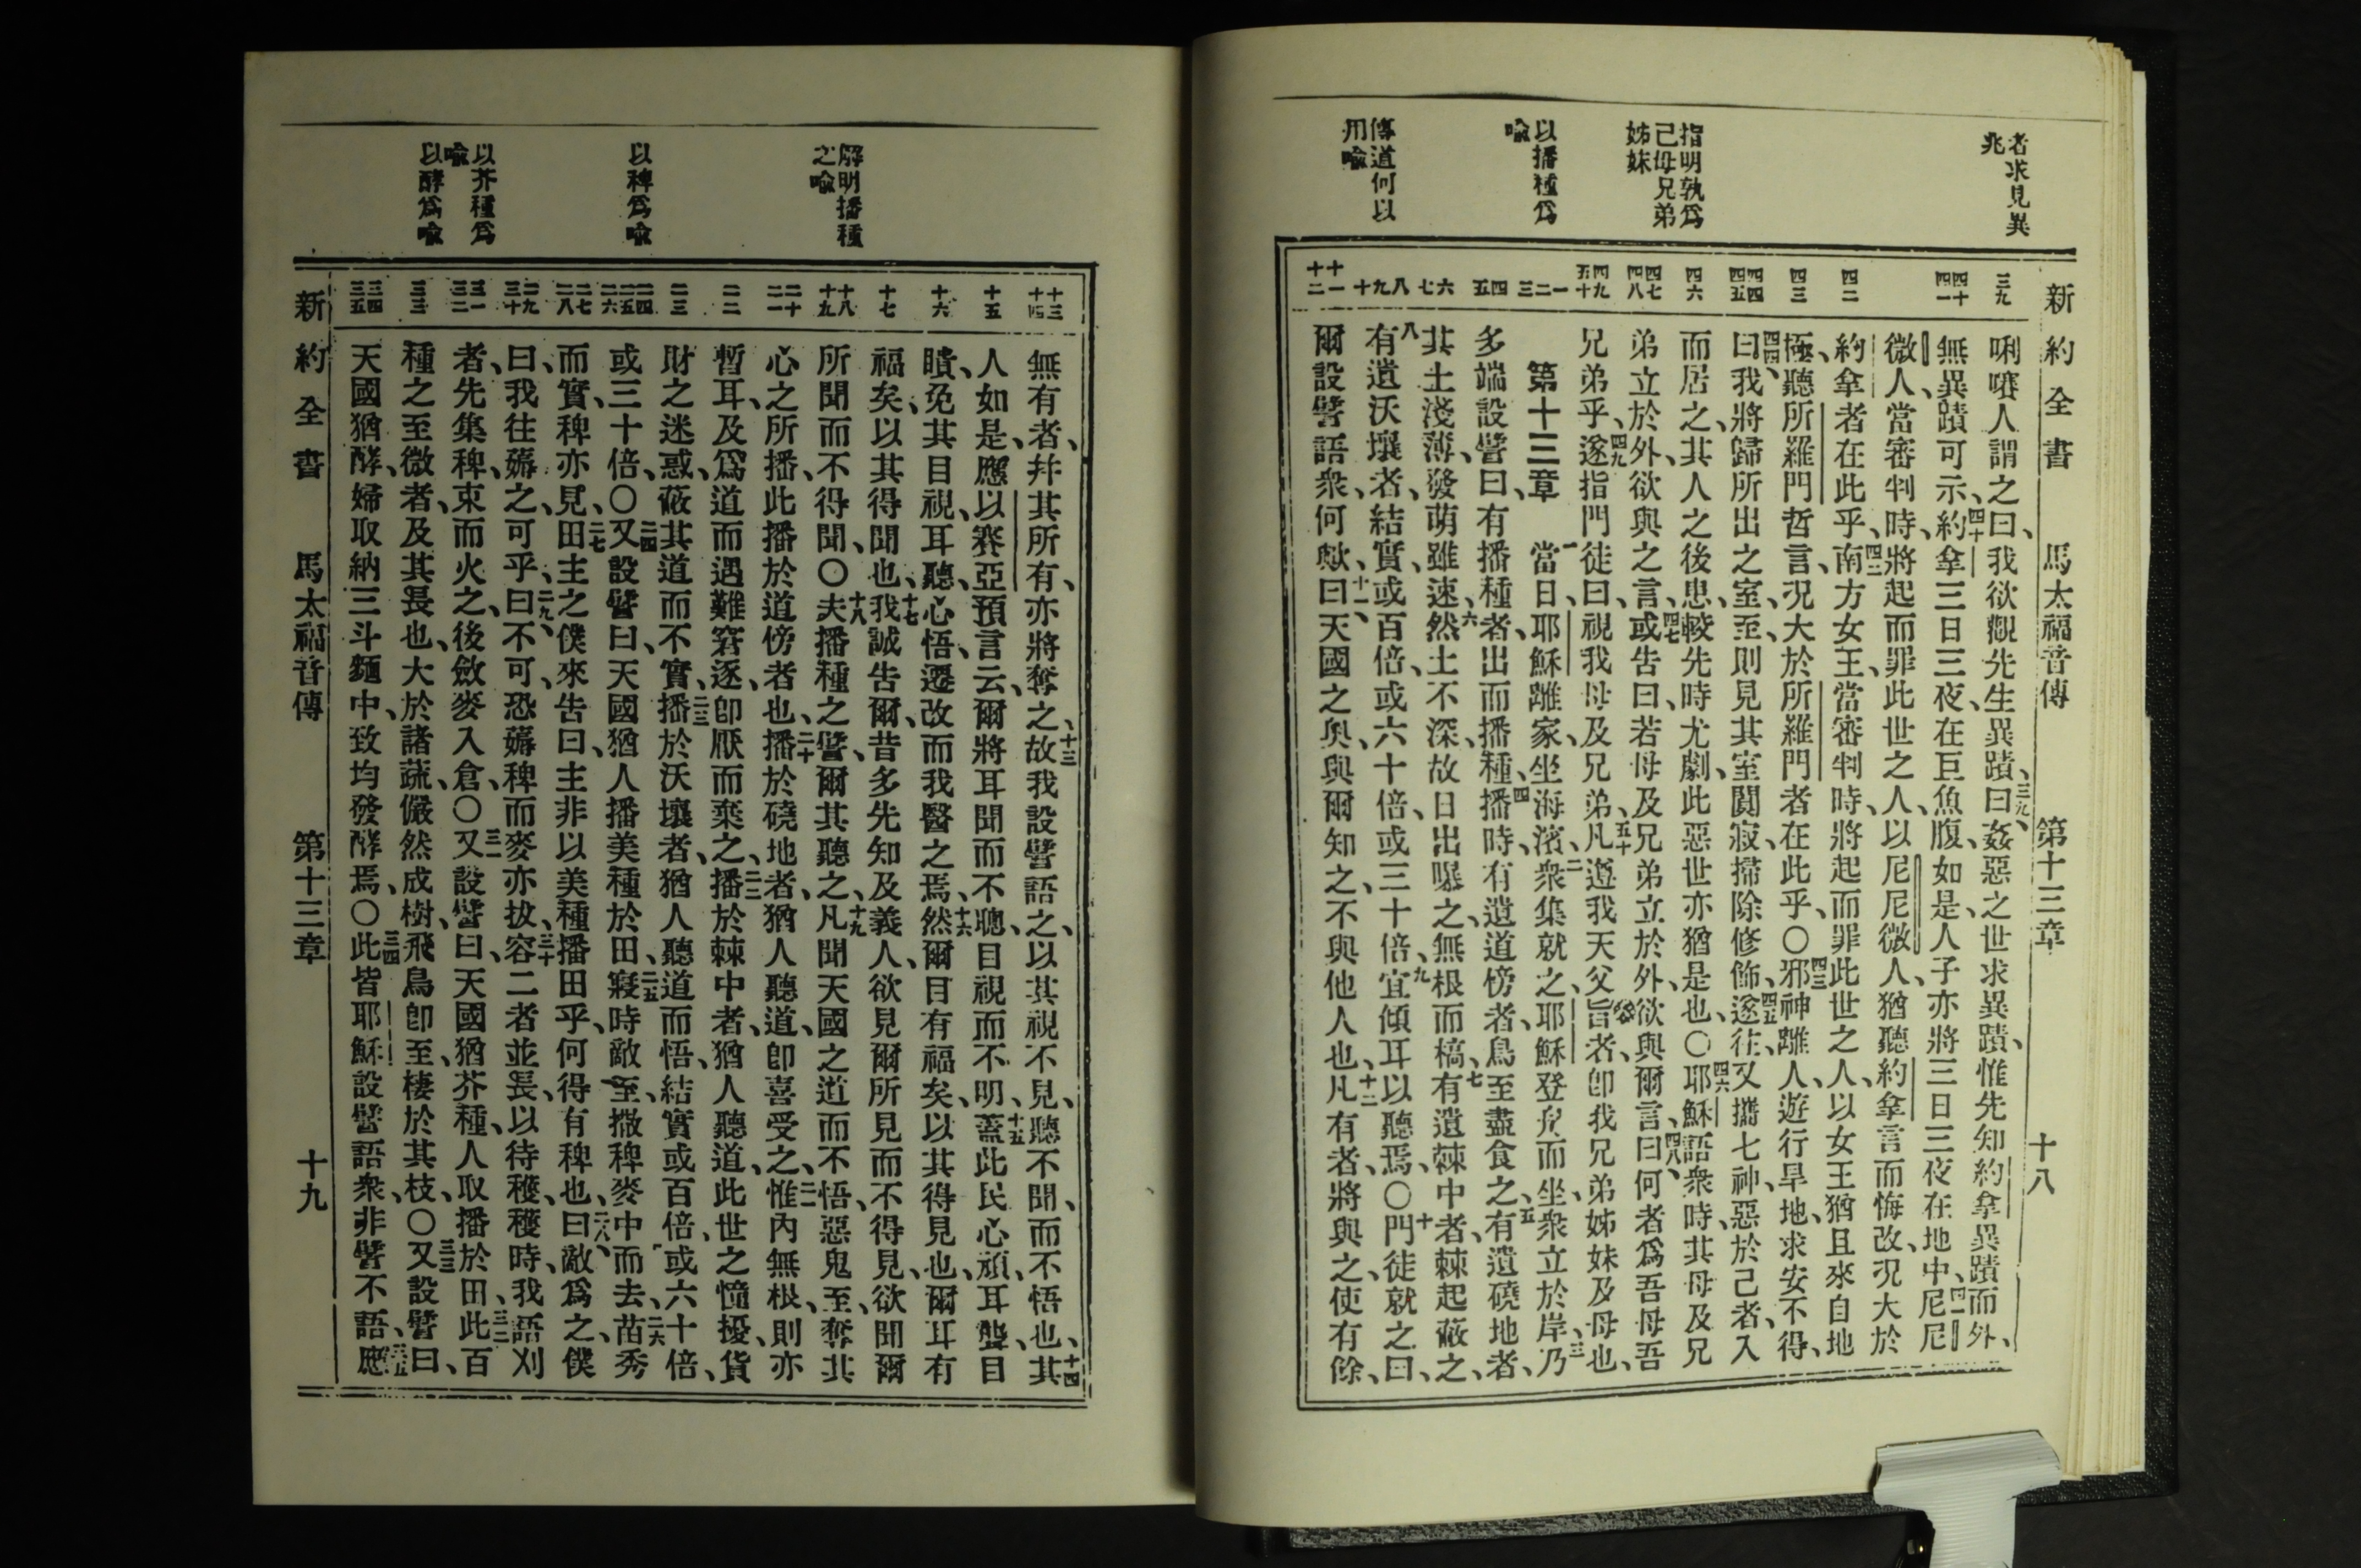 者求見異
兆
指明孰爲
己母兄弟
姊妹
以播種爲
喩
傳道何以
用喩
新約全書 馬太福音傳 第十三章 十八
三九
四十
四一
四二
四三
四四
四五
四六
四七
四八
四九
五十
一
二
三
四
五
六
七
八
九
十
十一
十二
唎㘔人謂之曰、我欲觀先生異蹟、三九曰、姦惡之世求異蹟、惟先知約拿異蹟而外、
無異蹟可示、四十約拿三日三夜、在巨魚腹、如是、人子亦將三日三夜在地中、四一尼尼
微人、當審判時、將起而罪此世之人、以尼尼微人、猶聽約拿言而悔改、況大於
約拿者在此乎、四二南方女王、當審判時、將起而罪此世之人、以女王猶且來自地
極、聽所羅門哲言、況大於所羅門者在此乎、〇四三邪神離人、遊行旱地、求安不得、
四四曰、我將歸所出之室、至、則見其室闃寂、掃除修飾、四五遂往、又攜七神、惡於己者、入
而居之、其人之後患、較先時尤劇、此惡世亦猶是也、〇四六耶穌語衆時、其母及兄
弟立於外、欲與之言、四七或告曰、若母及兄弟立於外、欲與爾言、四八曰、何者爲吾母吾
兄弟乎、四九遂指門徒曰、視我母及兄弟、五十凡遵我天父旨者、卽我兄弟姊妹及母也、
第十三章 一當日、耶穌離家、坐海濱、二衆集就之、耶穌登舟而坐、衆立於岸、三乃
多端設譬曰、有播種者、出而播種、四播時、有遺道傍者、鳥至盡食之、五有遺磽地者、
其土淺薄、發萌雖速、六然土不深、故日出曝之、無根而槁、七有遺棘中者、棘起蔽之、
八有遺沃壤者、結實、或百倍、或六十倍、或三十倍、九宜傾耳以聽焉、〇十門徒就之曰、
爾設譬語衆、何歟、十一曰、天國之奧、與爾知之、不與他人也、十二凡有者、將與之、使有餘、
解明播種
之喩
以稗爲喩
以芥種爲
喩
以酵爲喩
十三
十四
十五
十六
十七
十八
十九
二十
二一
二二
二三
二四
二五
二六
二七
二八
二九
三十
三一
三二
三三
三四
三五
無有者、幷其所有、亦將奪之、十三故我設譬語之、以其視不見、聽不聞、而不悟也、十四其
人如是、應以賽亞預言、云、爾將耳聞而不聰、目視而不明、十五蓋此民心頑、耳聾、目
瞶、免其目視、耳聽、心悟、遷改、而我醫之焉、十六然爾目有福矣、以其得見也、爾耳有
福矣、以其得聞也、十七我誠告爾、昔多先知及義人、欲見爾所見而不得見、欲聞爾
所聞而不得聞、〇十八夫播種之譬、爾其聽之、十九凡聞天國之道而不悟、惡鬼至、奪其
心之所播、此播於道傍者也、二十播於磽地者、猶人聽道、卽喜受之、二一惟內無根、則亦
暫耳、及爲道而遇難窘逐、卽厭而棄之、二二播於棘中者、猶人聽道、此世之憧擾、貨
財之迷惑、蔽其道而不實、二三播於沃壤者、猶人聽道而悟、結實、或百倍、或六十倍、
或三十倍、〇二四又設譬曰、天國猶人播美種於田、二五寢時、敵至、撒稗麥中而去、二六苗秀
而實、稗亦見、二七田主之僕來告曰、主非以美種播田乎、何得有稗也、二八曰、敵爲之、僕
曰、我往薅之、可乎、二九曰、不可、恐薅稗而麥亦拔、三十容二者並長、以待穫、穫時、我語刈
者、先集稗、束而火之、後斂麥入倉、〇三一又設譬曰、天國猶芥種、人取播於田、三二此百
種之至微者、及其長也、大於諸蔬、儼然成樹、飛鳥卽至、棲於其枝、〇三三又設譬曰、
天國猶酵、婦取納三斗麵中、致均發酵焉、〇三四此皆耶穌設譬語衆、非譬不語、三五應
新約全書 馬太福音傳 第十三章 十九